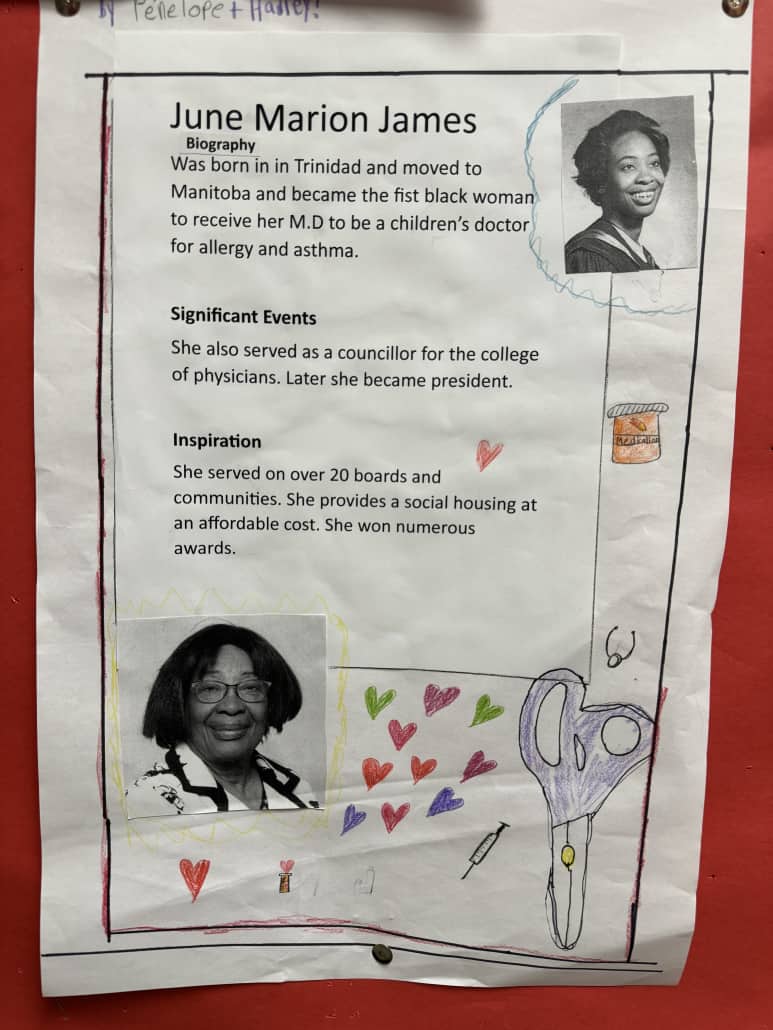 by Penelope + Hadley!
June Marion James
Biography
Was born in in Trinidad and moved to
Manitoba and became the fist black woman
to receive her M.D to be a children's doctor
for allergy and asthma.
Significant Events
She also served as a councillor for the college
of physicians. Later she became president.
Inspiration
She served on over 20 boards and
communities. She provides a social housing at
an affordable cost. She won numerous
awards.